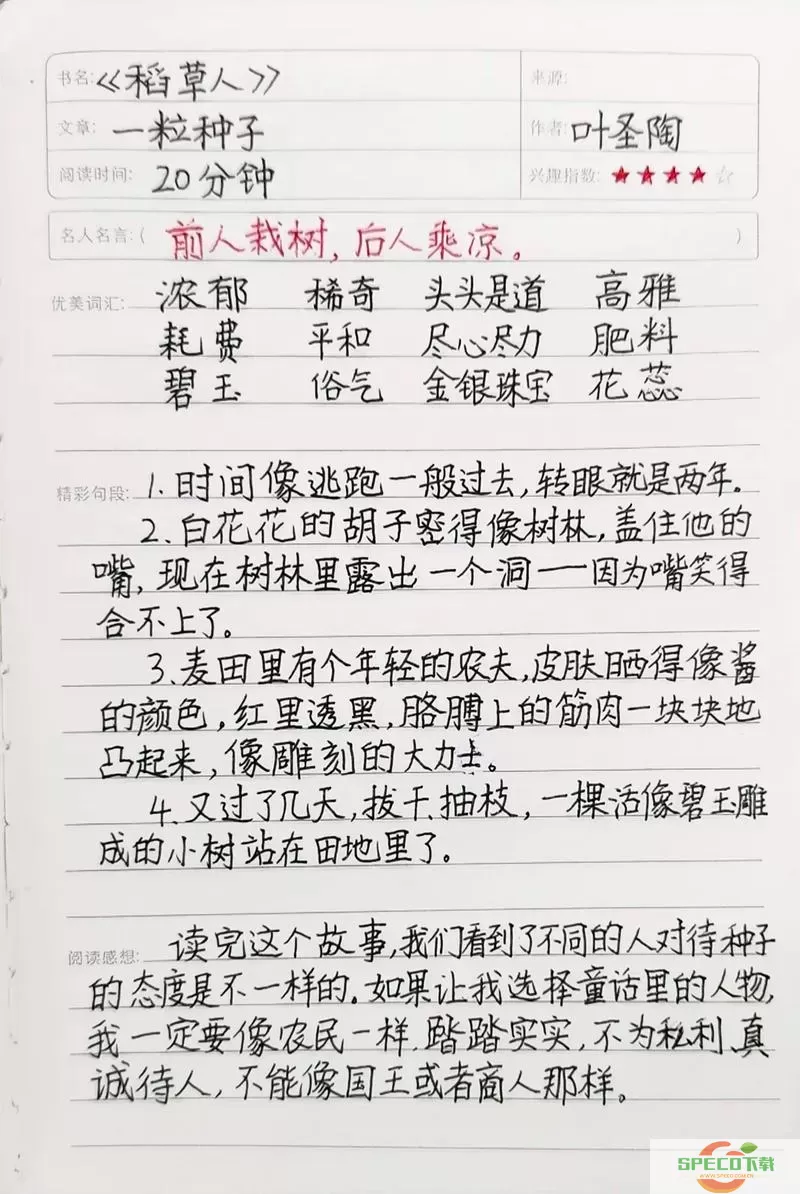 书名:《稻草人》 来源:
文章: 一粒种子 作者: 叶圣陶
阅读时间: 20分钟 兴趣指数: ★★★★☆
名人名言:( 前人栽树,后人乘凉。 )
优美词汇: 浓郁 稀奇 头头是道 高雅
耗费 平和 尽心尽力 肥料
碧玉 俗气 金银珠宝 花蕊
精彩句段: 1.时间像逃跑一般过去,转眼就是两年。
2.白花花的胡子密得像树林,盖住他的
嘴,现在树林里露出一个洞——因为嘴笑得
合不上了。
3.麦田里有个年轻的农夫,皮肤晒得像酱
的颜色,红里透黑,胳膊上的筋肉一块块地
凸起来,像雕刻的大力士。
4.又过了几天,拔干、抽枝,一棵活像碧玉雕
成的小树站在田地里了。
阅读感想: 读完这个故事,我们看到了不同的人对待种子
的态度是不一样的。如果让我选择童话里的人物,
我一定要像农民一样,踏踏实实,不为私利、真
诚待人,不能像国王或者商人那样。
SPECO下载